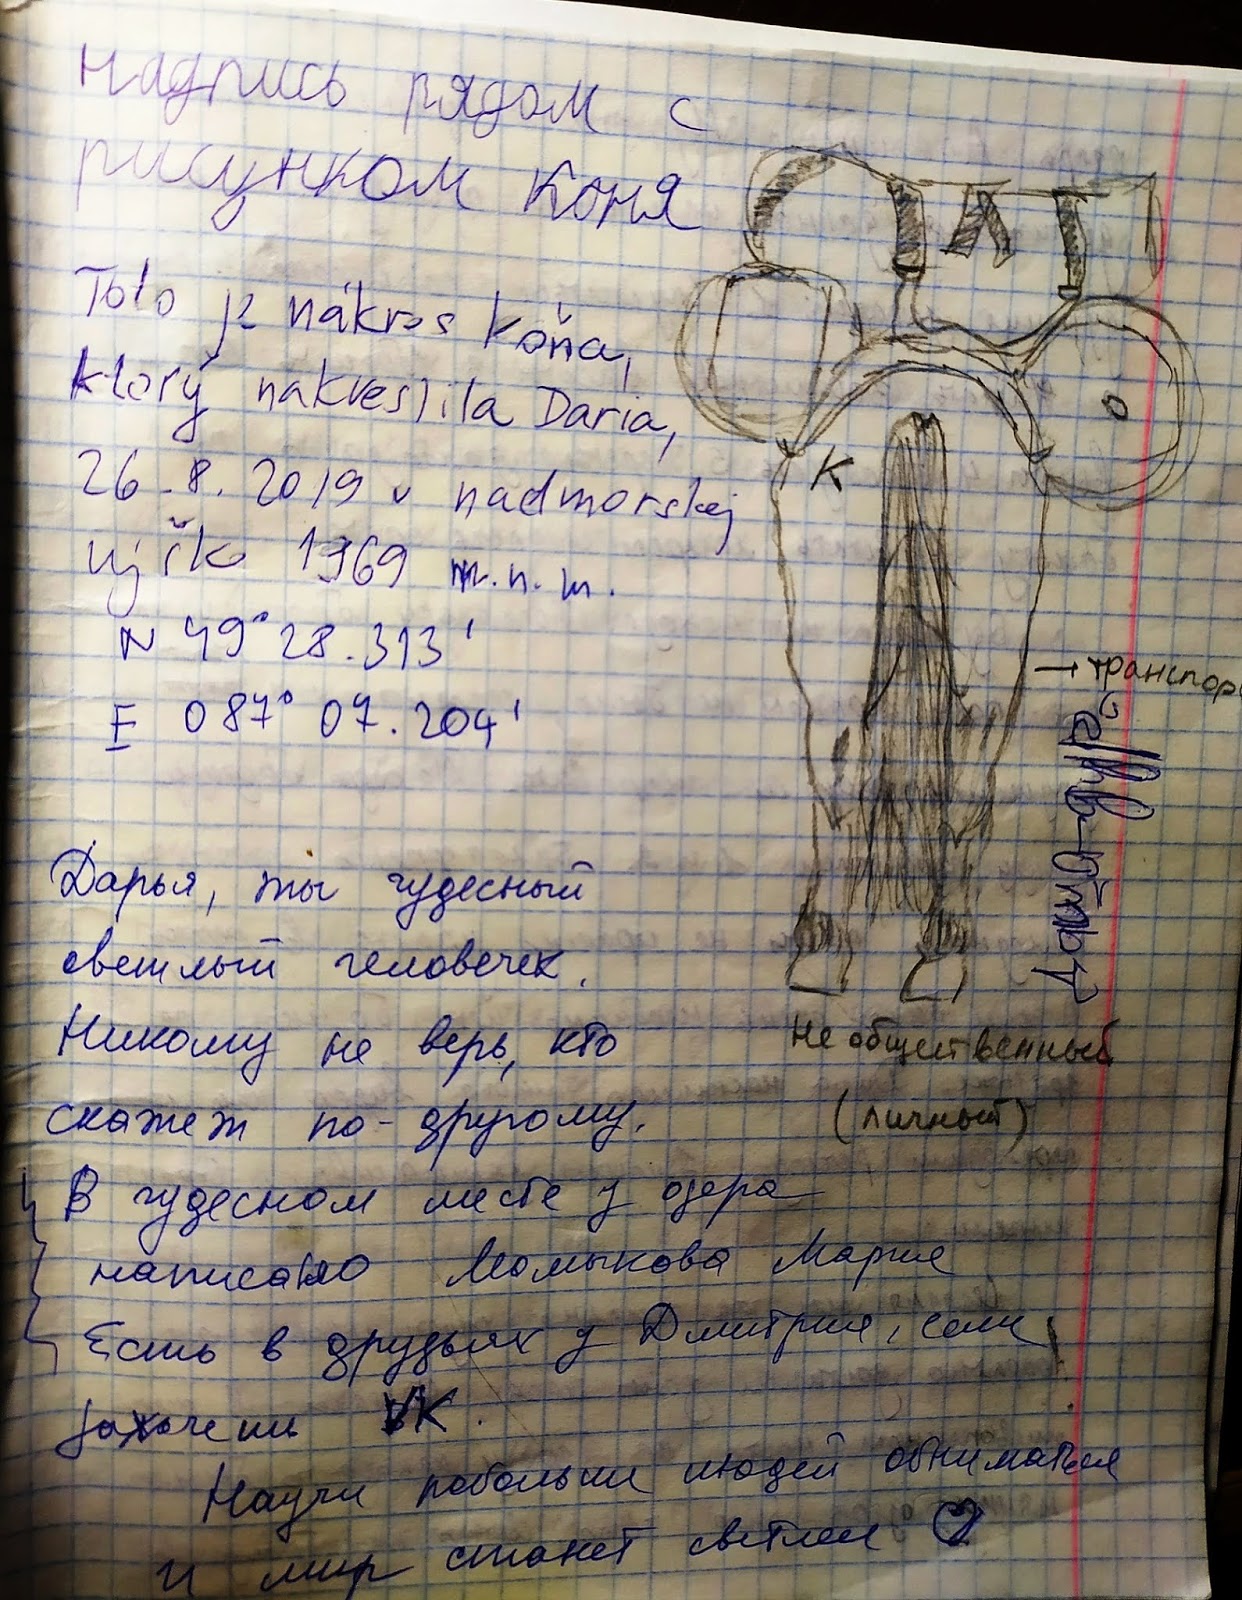 Надпись рядом с
рисунком Коня
Toto je nákres koňa,
ktorý nakreslila Daria,
26.8.2019 v nadmorskej
1969 m.n.m.
N 49° 28.313'
E 087° 07.204'
К
О
→ транспор
Не общественный
(личный)
Дарья, ты чудесный
светлый человечек.
Никому не верь, кто
скажет по-другому.
В чудесном месте у озера
написано Момыкова Мария
Есть в друзьях у Дмитрия, если
захочешь VK.
Научи побольше людей обниматься
и мир станет светлее